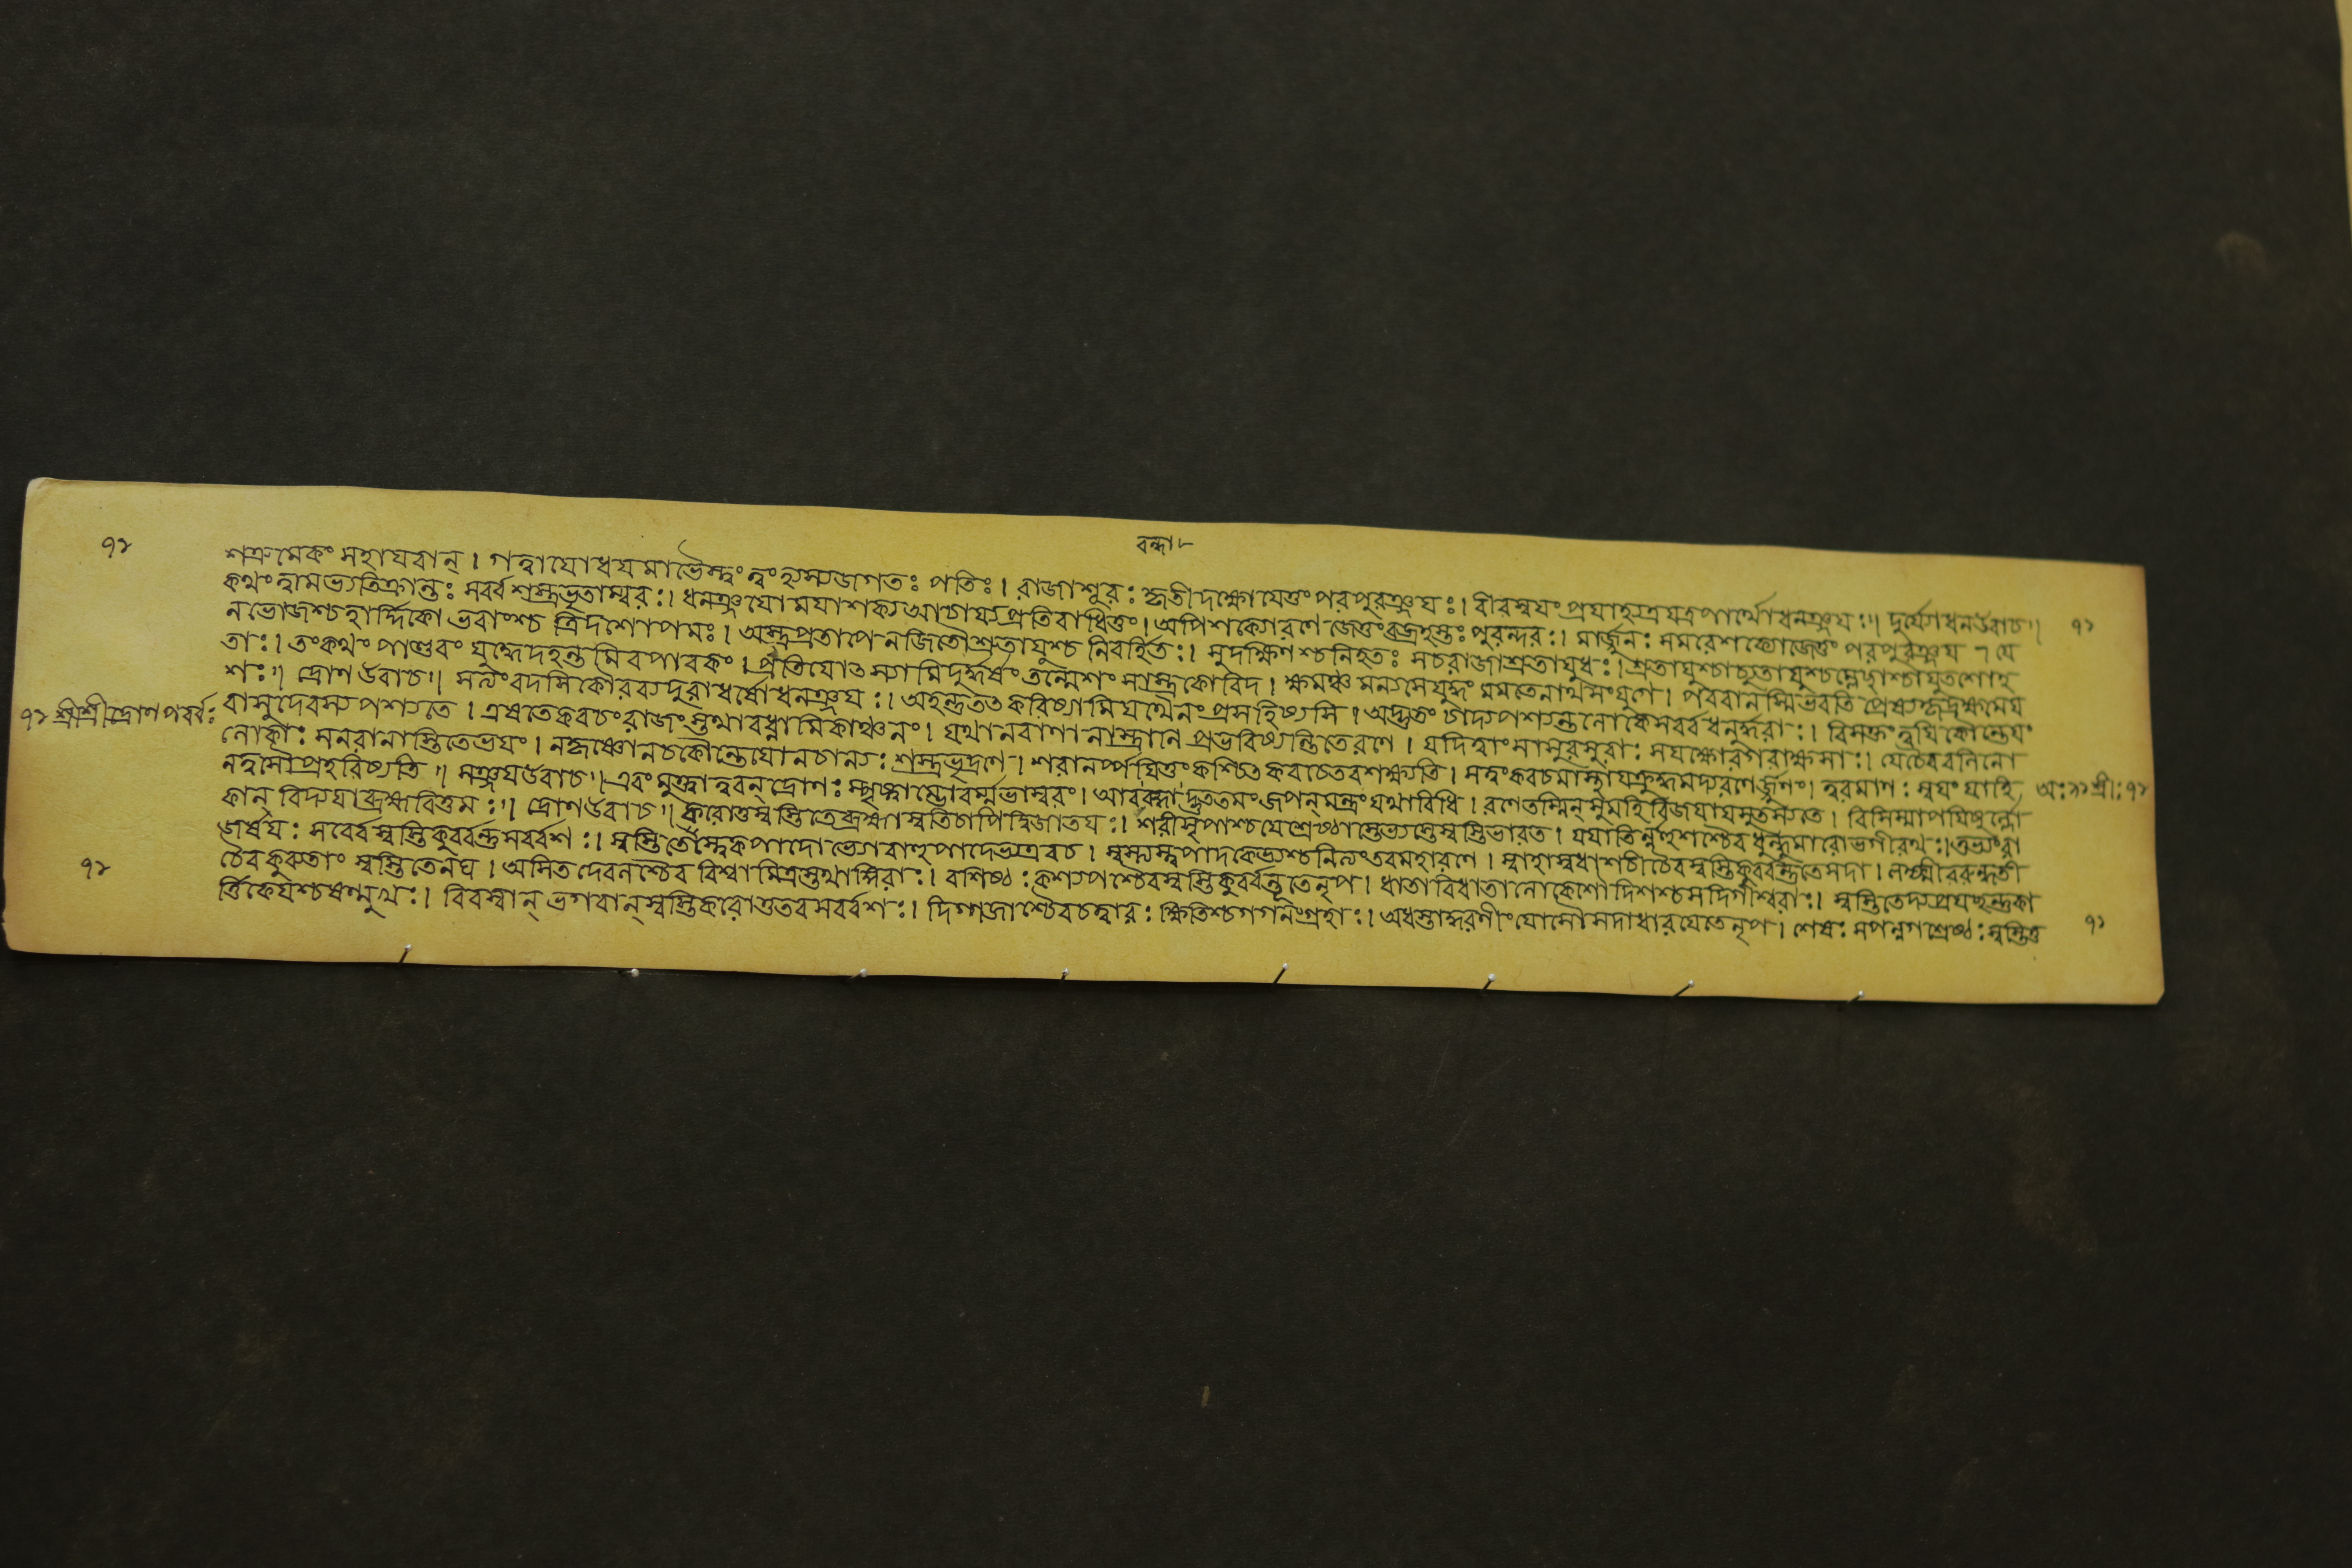 ৭১
বন্ধা৮
শত্রুমেকং মহাযবান্। গত্বাযোধযমাভৈস্ত্বং ত্বংহ্যস্যজগতঃ পতিঃ। রাজাশূরঃ কৃতীদক্ষো পরপুরঞ্জযঃ। বীরস্বযংপ্রযাহ্যত্রযত্রপার্থোধনঞ্জযঃ॥ দুর্য্যোধনউবাচ॥ ৭১
কথংত্বামভ্যতিক্রান্তঃ সর্ব্বশস্ত্রভৃতাম্বরঃ। ধনঞ্জযোমযাশক্যআচার্য্যপ্রতিবাধিতুং। অপিশক্যোরণে জেতুংবজ্রহস্তঃ পুরন্দরঃ। নার্জুনঃ সমরেশক্যোজেতুং পরপুরঞ্জয ৭ যে
নভোজশ্চহার্দ্দিক্যো ভবাংশ্চ ত্রিদশোপমঃ। অস্ত্রপ্রতাপেনজিতৌশ্রুতাযুশ্চ নিবর্হিতঃ। সুদক্ষিণশ্চনিহতঃ সচরাজাশ্রুতাযুধঃ। শ্রুতাযুশ্চাচ্যুতাযুশ্চম্লেচ্ছাশ্চাযুতশোহ
তাঃ। তংকথং পাণ্ডবং যুদ্ধেদহন্তমিবপাবকং। প্রতিযোৎস্যামিদুর্দ্ধর্ষং তন্মেশংসাস্ত্রকোবিদ। ক্ষমঞ্চ মন্যসেযুদ্ধং মমতেনাদ্যসংযুগে। পরবানস্মিভবতি
শঃ॥ দ্রোণ উবাচ॥ সত্যংবদসিকৌরব্যদুরাধর্ষোধনঞ্জযঃ। অহন্তুতৎকরিষ্যামিযথৈনংপ্রসহিষ্যসি। অদ্ভুতং চাদ্যপশ্যন্তুলোকেসর্ব্বধনুর্দ্ধরাঃ। বিসক্তংত্বযিকৌন্তেযং
৭১ শ্রীশ্রীদ্রোণপর্ব্বঃ বাসুদেবস্য পশ্যতে। এষতেকবচংরাজংস্তথাবধ্নামিকাঞ্চনং। যথানবাণা নাস্ত্রানি প্রভবিষ্যন্তিতেরণে। যদিত্বাং সাসুরসুরাঃ সযক্ষোরগরাক্ষসাঃ। যোৎস্যন্তি
লোকাঃ সনরানাস্তিতেভযং। নকৃষ্ণোনচকৌন্তেযোনচান্যঃ শস্ত্রভৃদ্রণে। শরানর্প্পযিতুংকশ্চিৎ কবচেতবশক্ষ্যতি। সত্বংকবচমাস্থাযক্রুদ্ধমদ্যরণের্জ্জুনং। ত্বরমাণঃ স্বযং যাহি অঃ৯৯ শ্রীঃ৭১
নত্বসৌপ্রহরিষ্যতি॥ সঞ্জযউবাচ॥ এবং মুক্ত্বাত্বরন্ দ্রোণঃ স্পৃষ্ট্বাম্ভোবর্ম্মভাস্বরং। আববন্ধাদ্ভুততমং জপন্মন্ত্রং যথাবিধি। রণেতস্মিন্ সুমহিবিজযাযসুতস্যতে। বিসিস্মাপযিষুর্ল্লো
কান্ বিদ্যযাব্রহ্মবিত্তমঃ॥ দ্রোণউবাচ॥ করোতুস্বস্তিতেব্রহ্মাস্বস্তিচাপিদ্বিজাতযঃ। শরীসৃপাশ্চযেশ্রেষ্ঠাস্তেভ্যস্তেস্বস্তিভারত। যযাতির্নহুশশ্চৈব ধুন্ধুমারোভগীরথঃ। তুভ্যংরা
জর্ষযঃ সর্ব্বেস্বস্তিকুর্ব্বন্তুসর্ব্বশঃ। স্বস্তিতেস্ত্বেকপাদেভ্যোবহুপাদেভ্যএবচ। স্বস্ত্যস্ত্বপাদকেভ্যশ্চনিত্যংতবমহারণে। স্বাহাস্বধাশচীচৈবস্বস্তিকুর্ব্বন্তুতেসদা। লক্ষ্মীররুন্ধতী
৭১ চৈবকুরুতাং স্বস্তিতেনঘ। অসিতদেবলশ্চৈব বিশ্বামিত্রস্তথাঙ্গিরাঃ। বশিষ্ঠঃ কশ্যপশ্চৈবস্বস্তিকুর্ব্বন্তুতেনৃপ। ধাতাবিধাতালোকেশোদিশশ্চসদিগীশ্বরাঃ। স্বস্তিতেদ্যপ্রযচ্ছন্তুকা
র্ত্তিকেযশ্চষণ্মুখঃ। বিবস্বান্ ভগবান্স্বস্তিকরোতুতবসর্ব্বশঃ। দিগ্গজাশ্চৈবচত্বারঃ ক্ষিতিশ্চগগনংগ্রহাঃ। অধস্তাদ্ধরণীং যোসৌসদাধারযেতেনৃপ। শেষঃ সপন্নগশ্রেষ্ঠঃ স্বস্তিতু ৭১